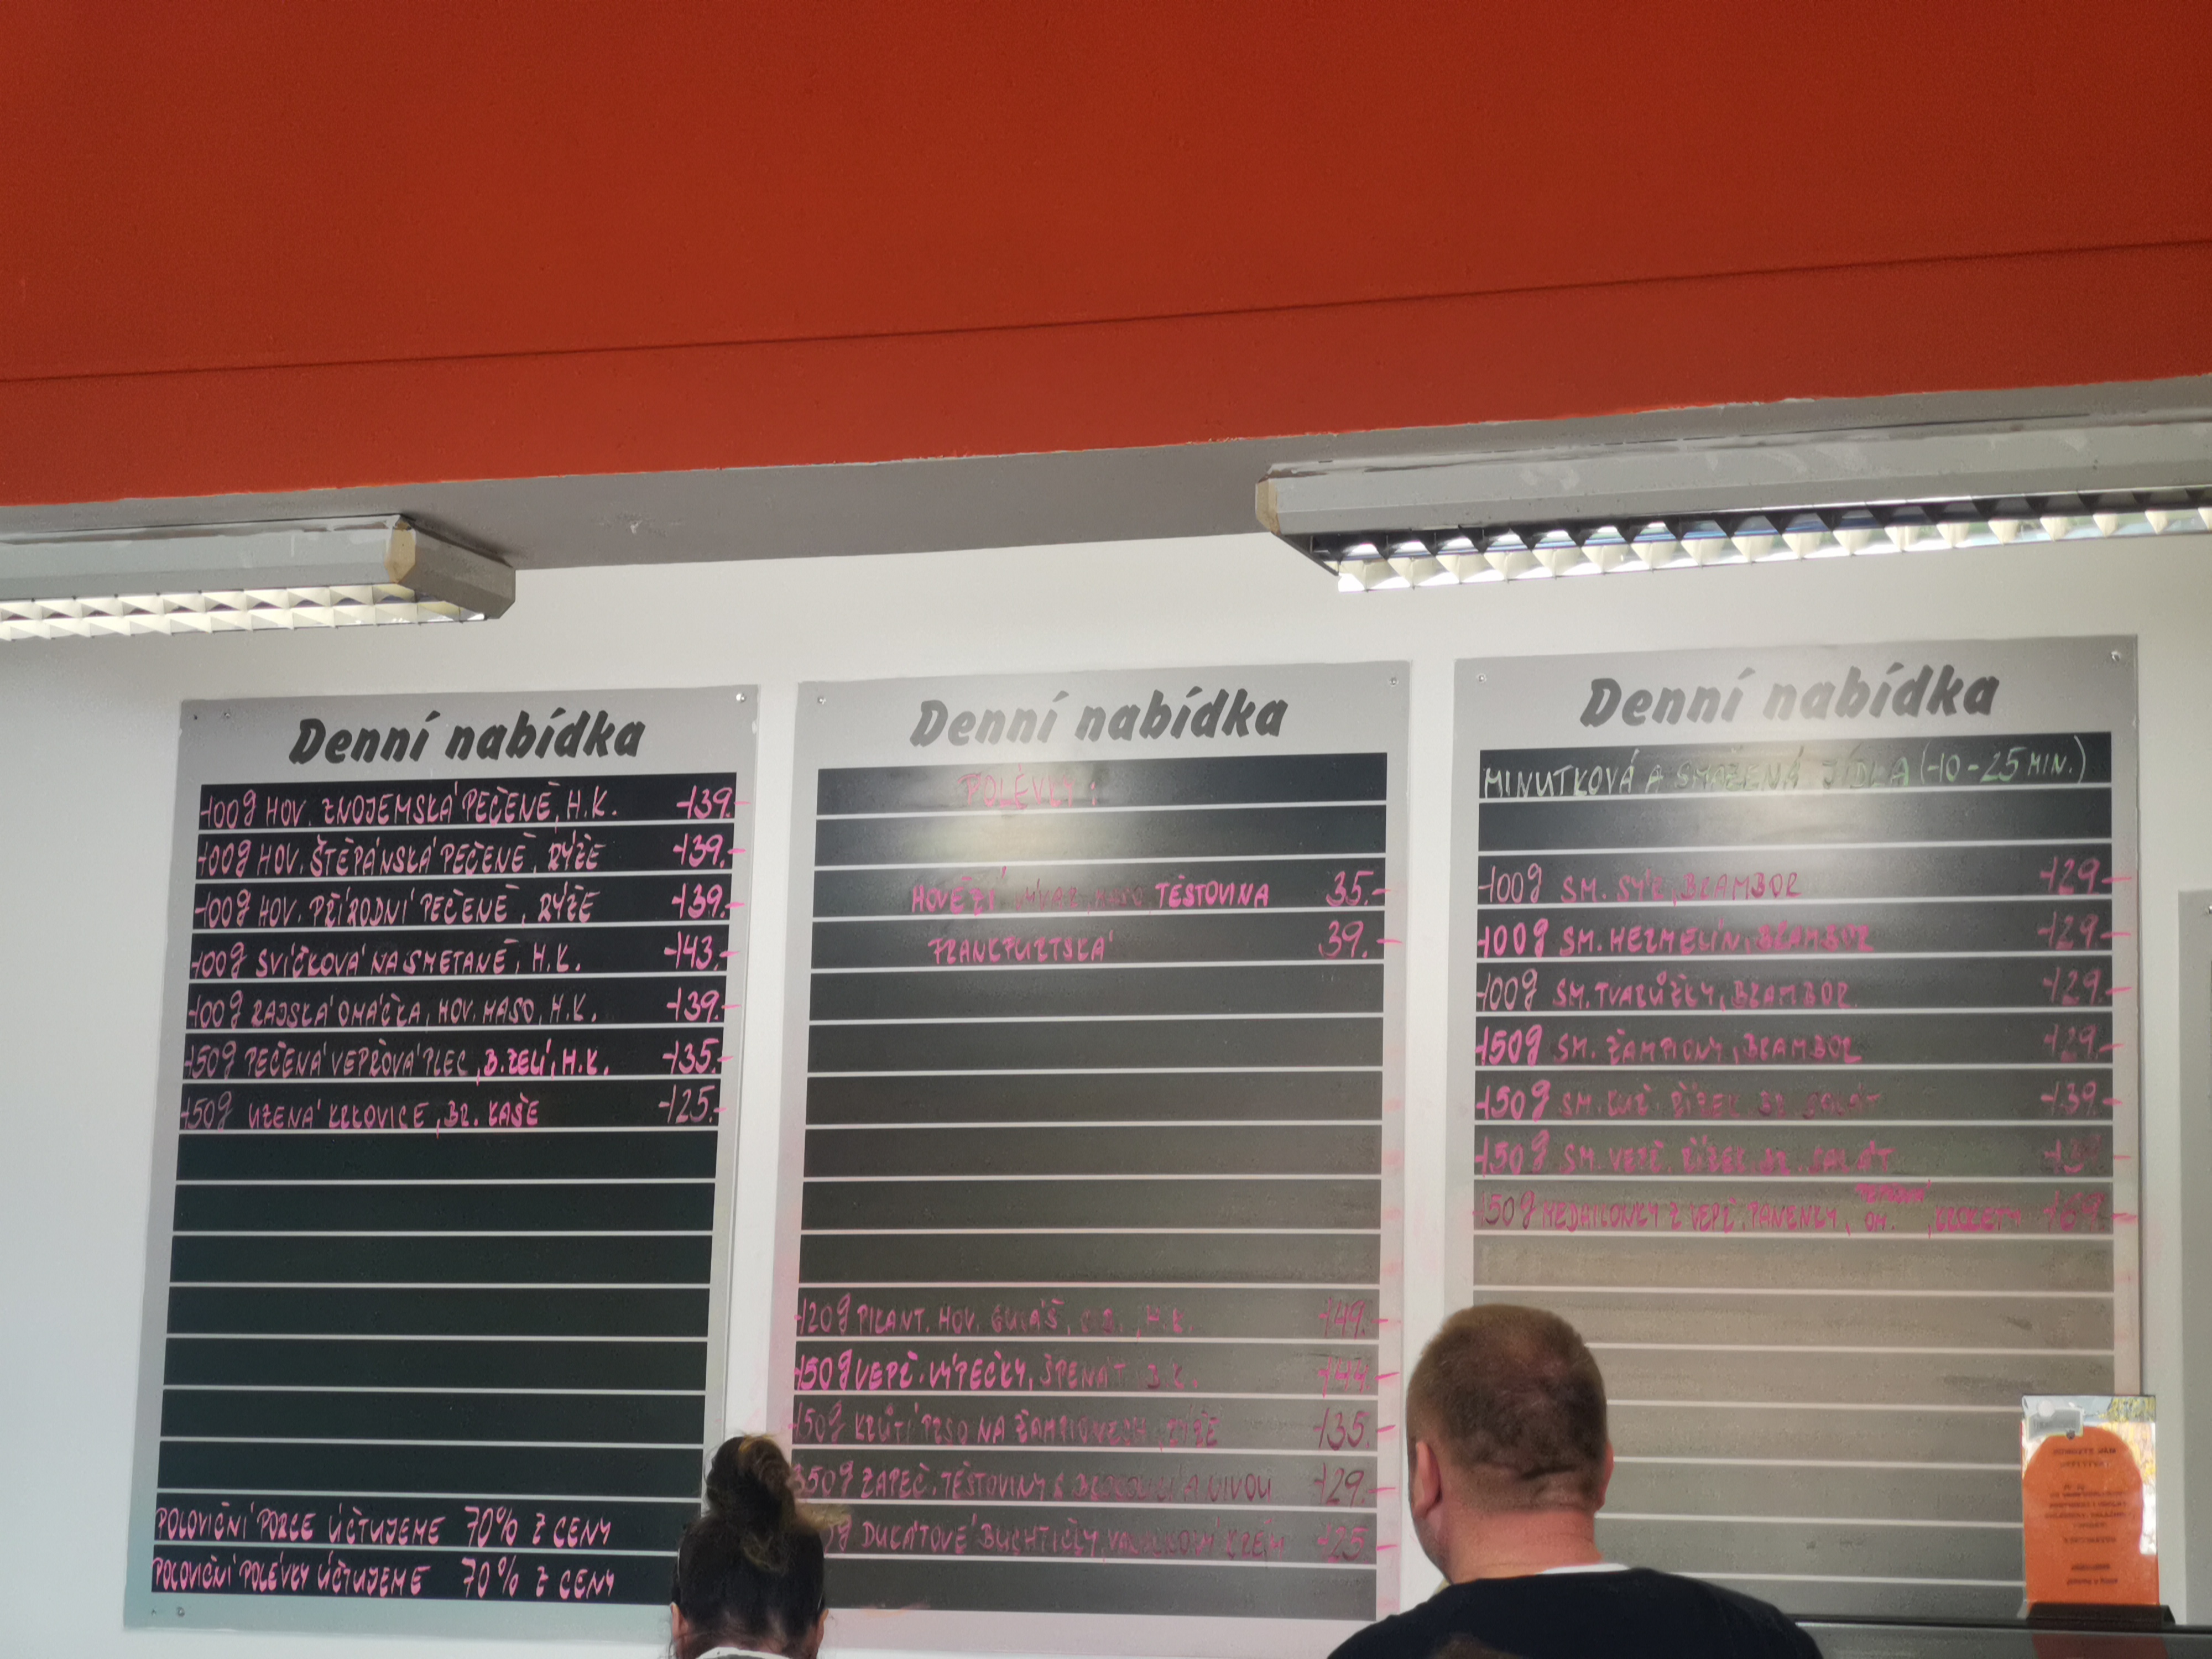 Denní nabídka
100g HOV. ZNOJEMSKÁ PEČENĚ, H.K. 139.-
100g HOV. ŠTĚPÁNSKÁ PEČENĚ, RÝŽE 139.-
100g HOV. PŘÍRODNÍ PEČENĚ, RÝŽE 139.-
100g SVÍČKOVÁ NA SMETANĚ, H.K. 143.-
100g RAJSKÁ OMÁČKA, HOV. MASO, H.K. 139.-
150g PEČENÁ VEPŘOVÁ PLEC, B.ZELÍ, H.K. 135.-
150g UZENÁ KRKOVICE, BR. KAŠE 125.-
POLOVIČNÍ PORCE ÚČTUJEME 70% Z CENY
POLOVIČNÍ POLÉVKY ÚČTUJEME 70% Z CENY
Denní nabídka
POLÉVKY:
HOVĚZÍ VÝVAR, MASO, TĚSTOVINA 35.-
FRANKFURTSKÁ 39.-
120g PIKANT. HOV. GULÁŠ, H.K. 149.-
150g VEPŘ. VÝPEČKY, ŠPENÁT, B.K. 144.-
150g KRŮTÍ PRSO NA ŽAMPIONECH, RÝŽE 135.-
350g ZAPEČ. TĚSTOVINY S BROKOLICÍ A NIVOU 129.-
DUKÁTOVÉ BUCHTIČKY, VANILKOVÝ KRÉM 125.-
Denní nabídka
MINUTKOVÁ A SMAŽENÁ JÍDLA (10-25 MIN.)
100g SM. SÝR, BRAMBOR 129.-
100g SM. HERMELÍN, BRAMBOR 129.-
100g SM. TVARŮŽKY, BRAMBOR 129.-
150g SM. ŽAMPIONY, BRAMBOR 129.-
150g SM. KUŘ. ŘÍZEK, BR. SALÁT 139.-
150g SM. VEPŘ. ŘÍZEK, BR. SALÁT 139.-
150g MEDAILONKY Z VEPŘ. PANENKY, OM., KROKETY 169.-